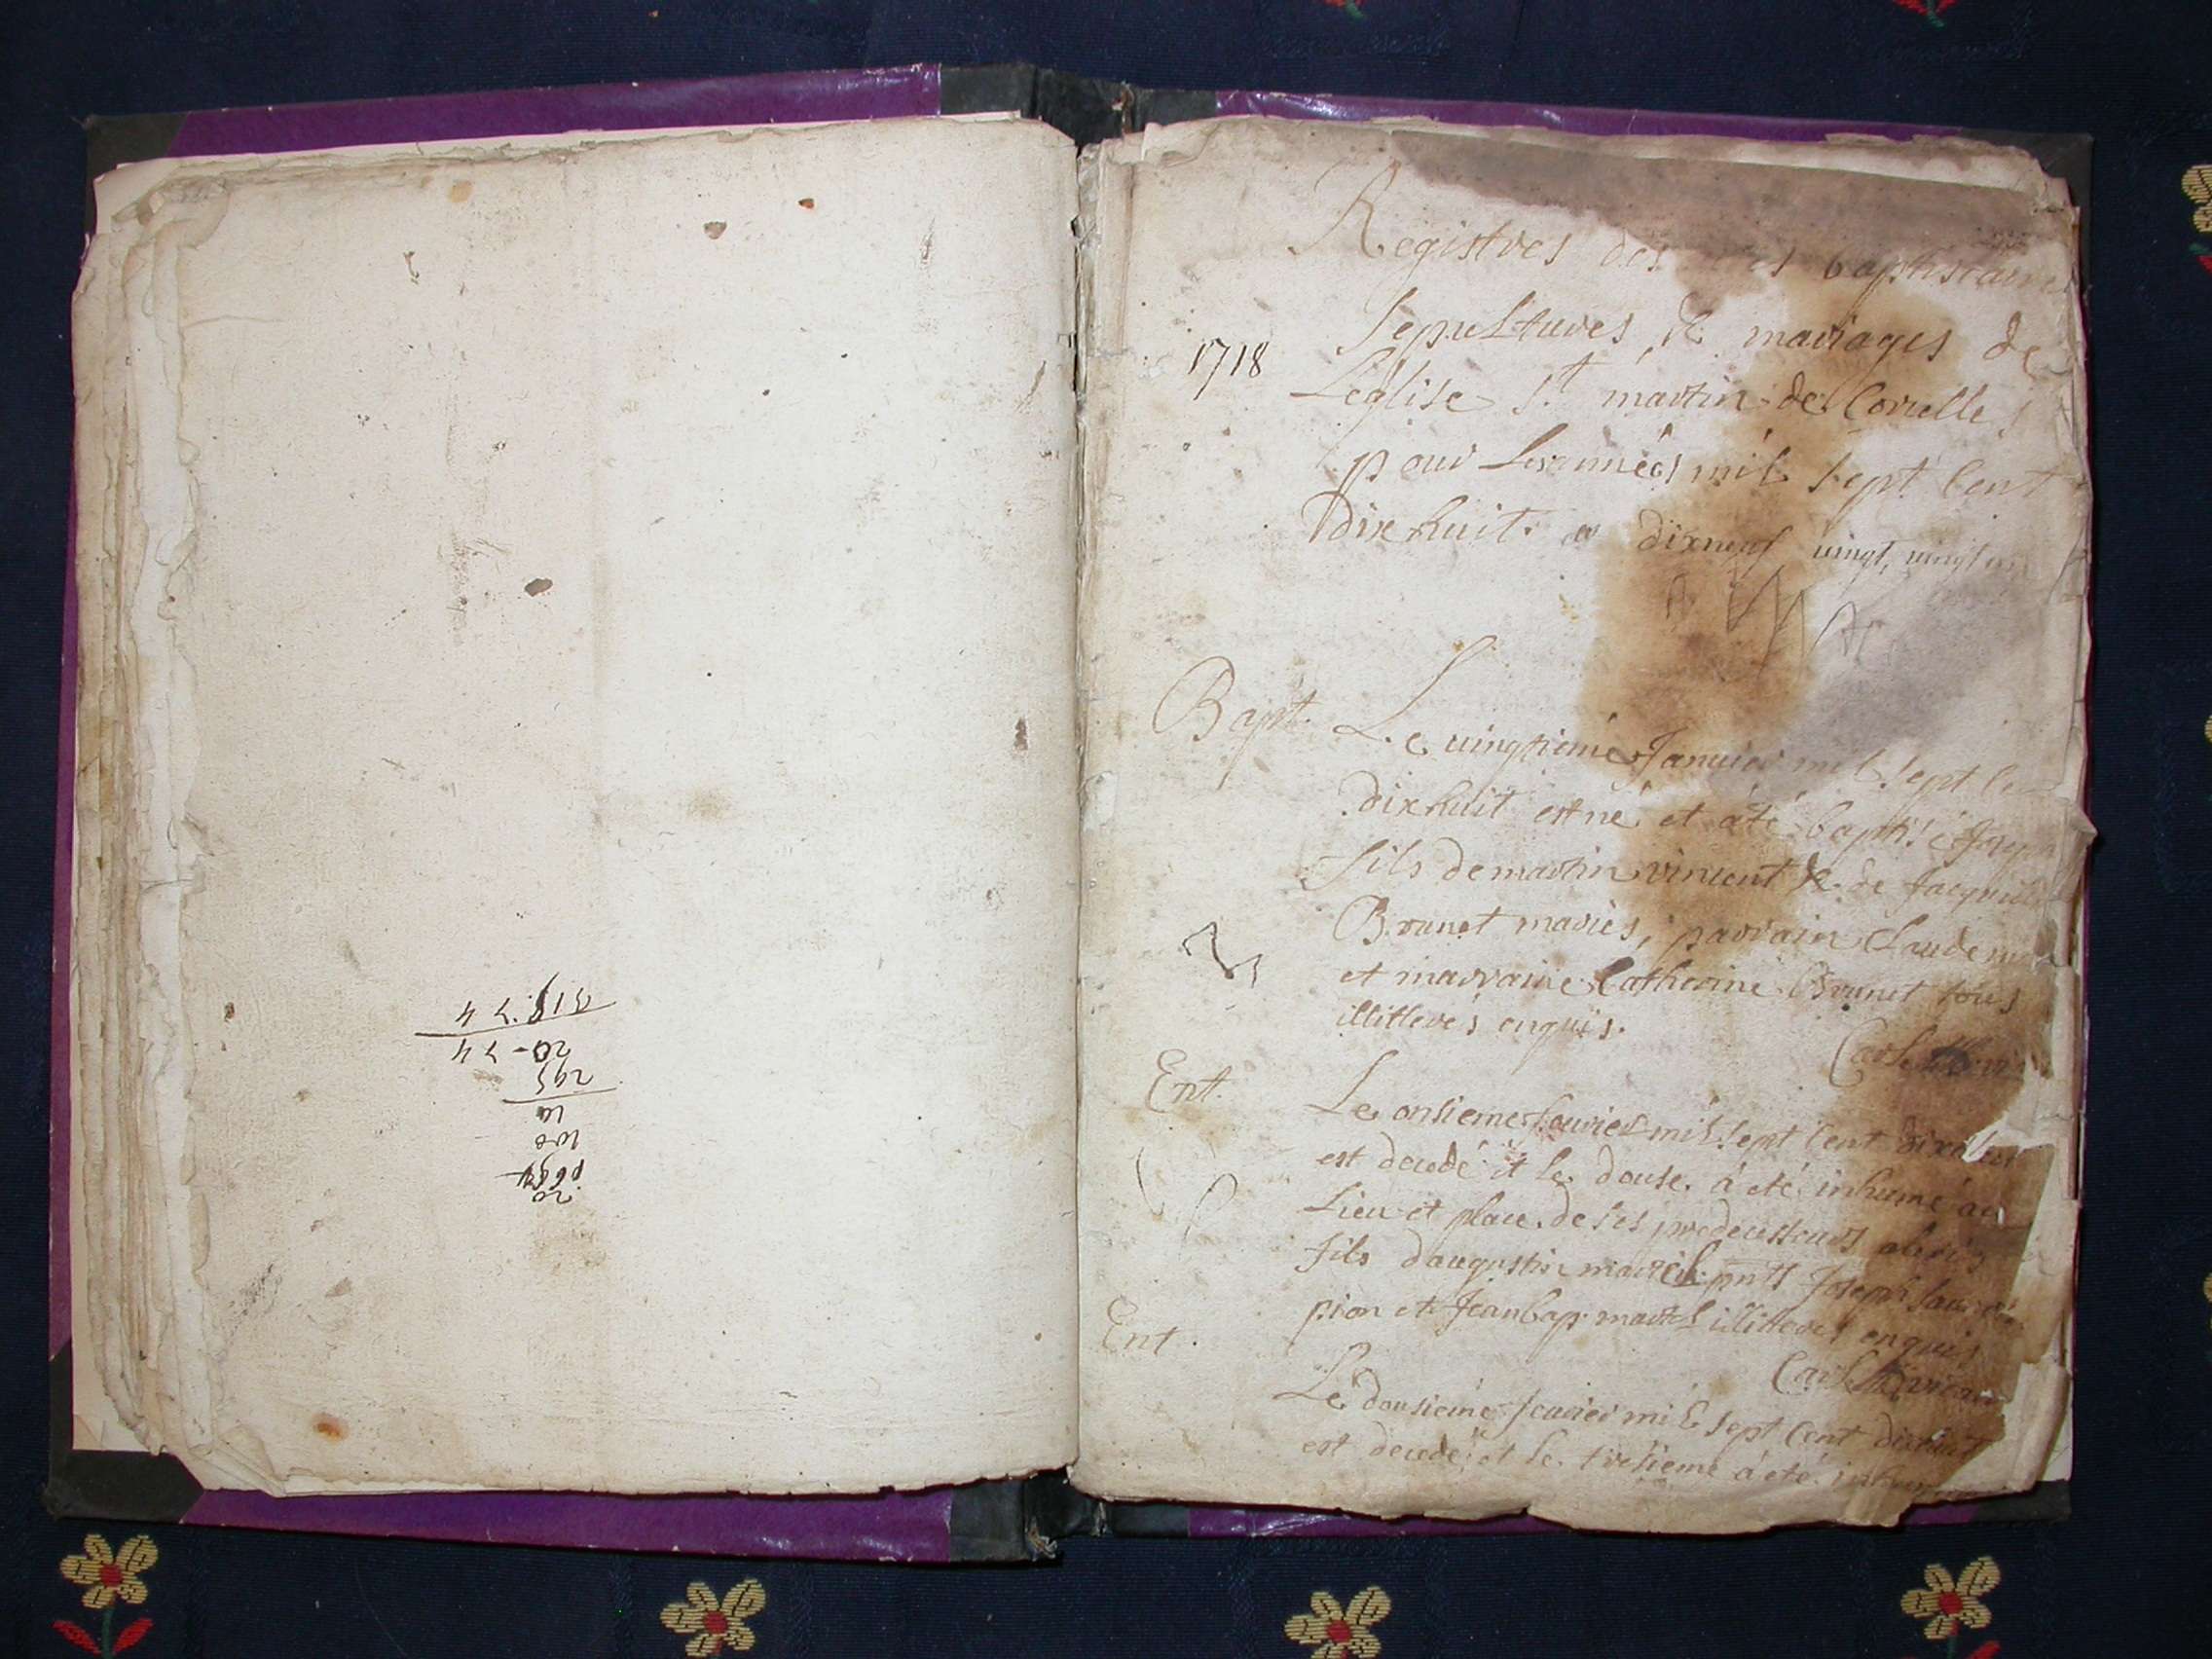 318. 74
20-74
295
Registres des baptistaires
Sepultures, & mariages de
1718
L'eglise St martin de Corcelles
pour Les années mil sept Cent
Dixhuit. dixneuf vingt, vingt un
Bapt. Le vingtieme Janvier mil sept Ce
dixhuit est né et a été baptisé Joseph
fils de martin vincent & de Jacqueline
Brunet mariés, parrain Claude
et marraine Catherine Brunet tous
illitterés enquis.
Ent. Le onsieme fevrier mil sept Cent dixhuit
est decedé et le douse. a eté inhumé au
Lieu et place de ses predecesseurs
fils d'augustin pnts Joseph
pion et Jean bap: martel illiterés enquis
Ent. Le dousieme fevrier mil sept Cent dixhuit
est decedé, et le tresieme a eté inhumé